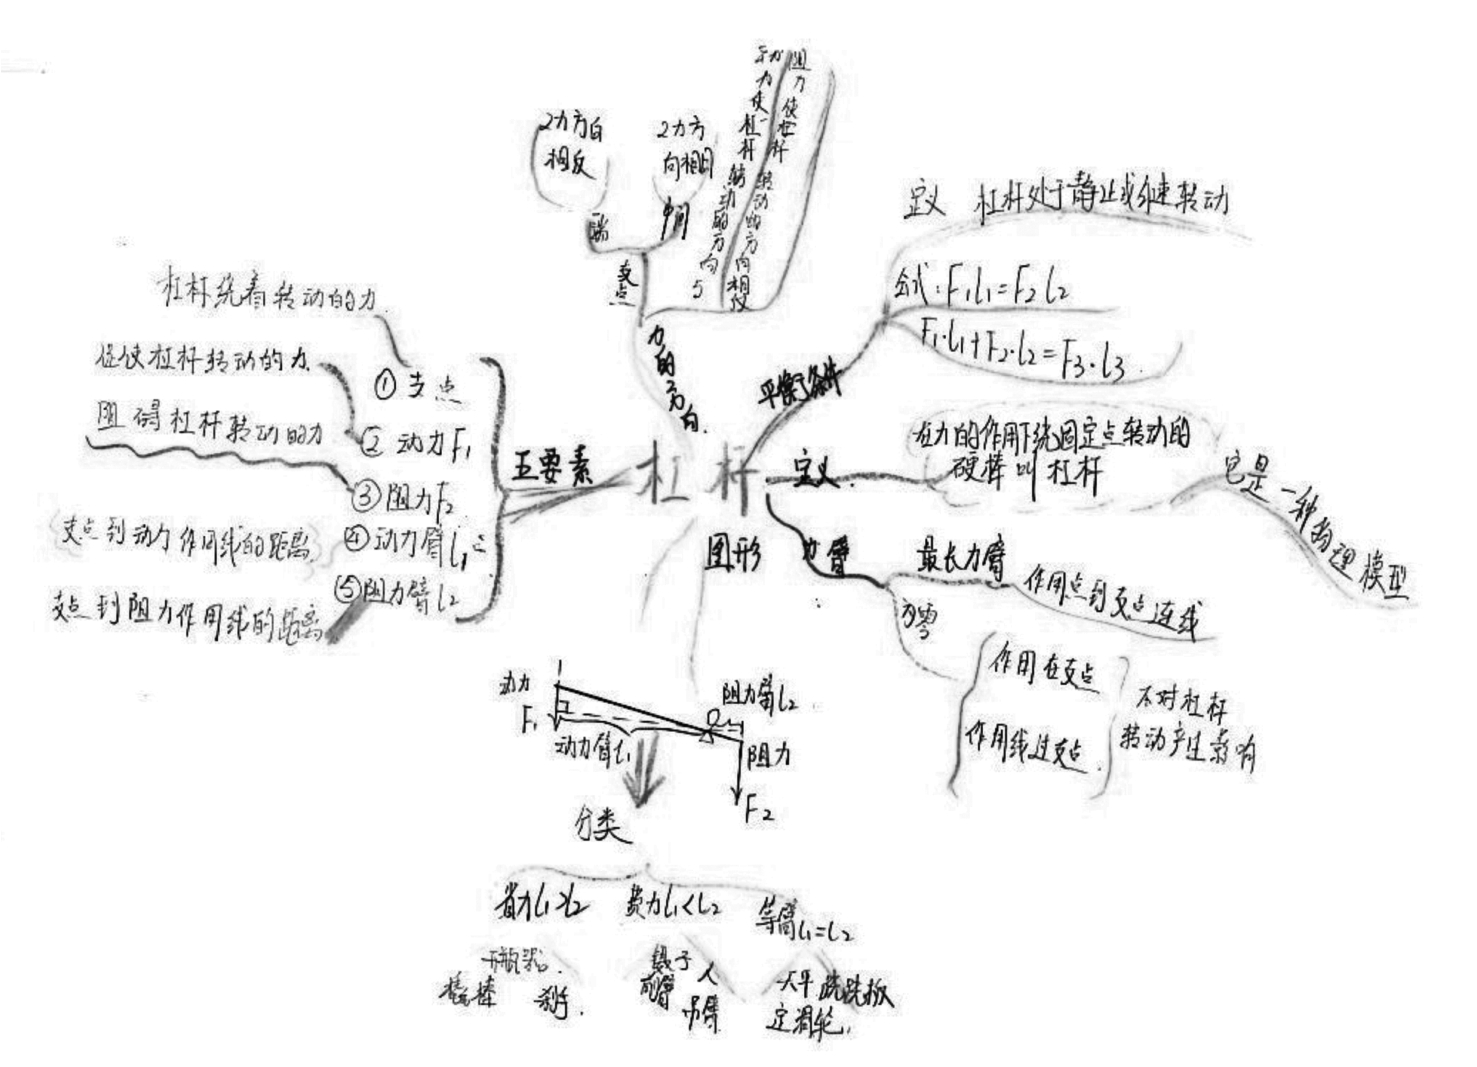 杠杆
五要素
① 支点
杠杆绕着转动的力
② 动力F₁
促使杠杆转动的力
③ 阻力F₂
阻碍杠杆转动的力
④ 动力臂l₁
支点到动力作用线的距离
⑤ 阻力臂l₂
支点到阻力作用线的距离
力的方向
支点
端
2力方向
相反
中间
2力方
向相同
动力使杠杆转动的方向与
阻力使杠杆转动的方向相反
平衡条件
定义 杠杆处于静止或匀速转动
公式:F₁l₁=F₂l₂
F₁·l₁+F₂·l₂=F₃·l₃
定义
在力的作用下绕固定点转动的
硬棒叫杠杆
它是一种物理模型
力臂
最长力臂
作用点到支点连线
为零
作用在支点
作用线过支点
不对杠杆
转动产生影响
图形
动力
F₁
动力臂l₁
阻力臂l₂
阻力
F₂
分类
省力l₁>l₂
开瓶器
撬棒
费力l₁<l₂
镊子 人
前臂 吊臂
等臂l₁=l₂
天平 跷跷板
定滑轮